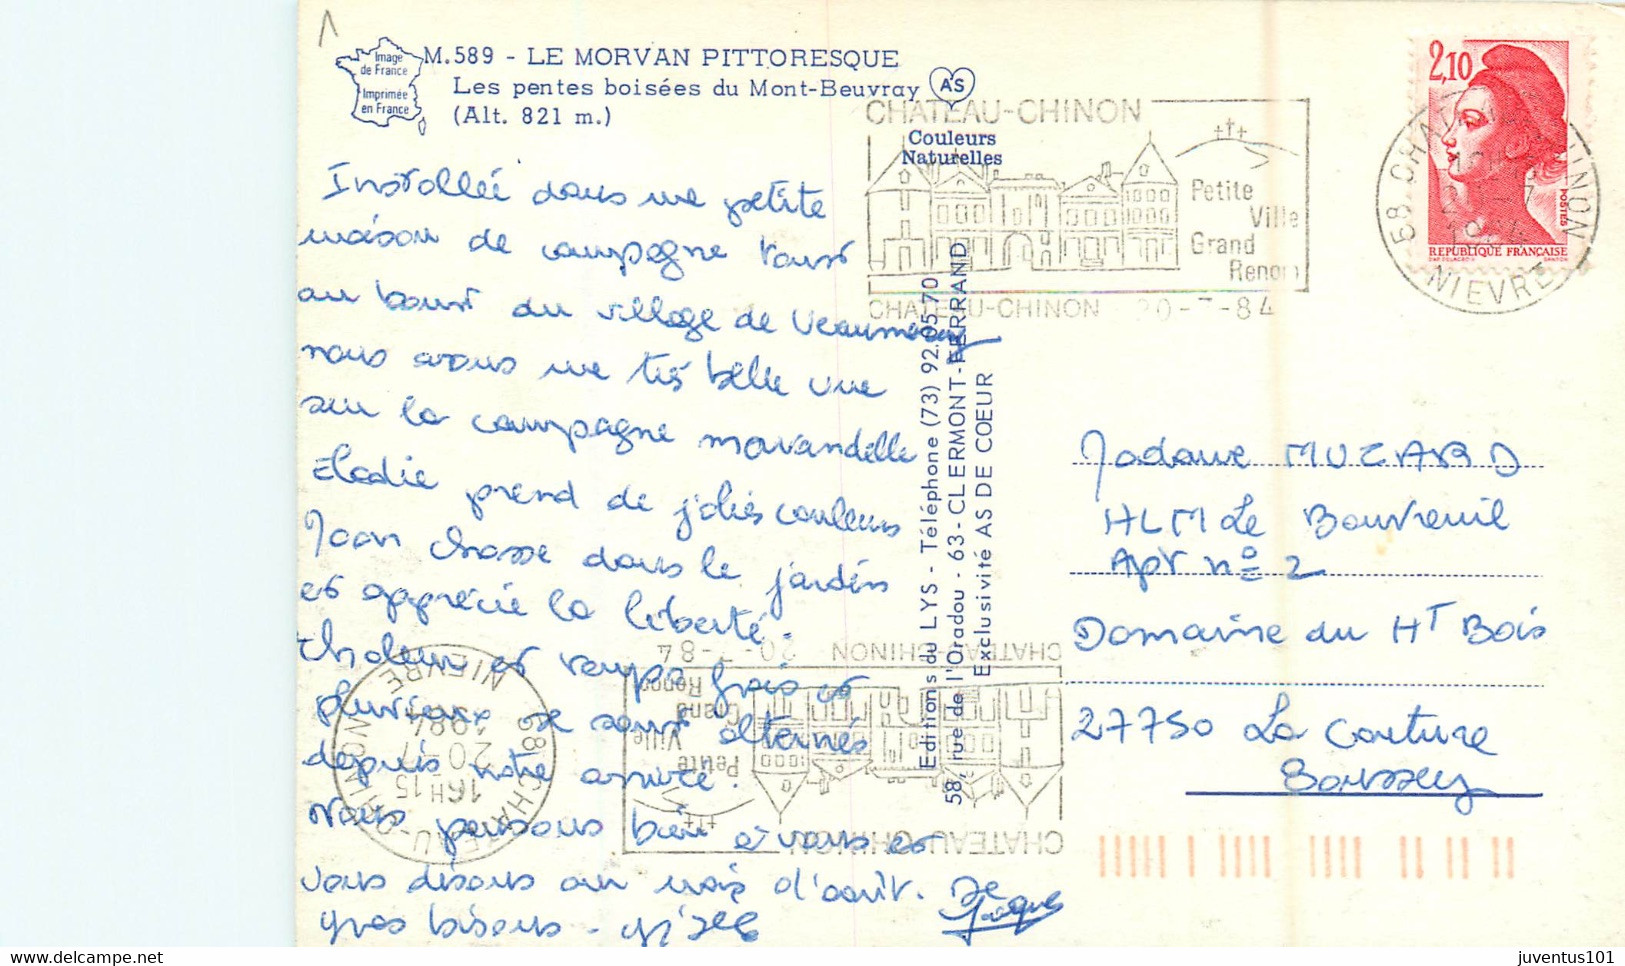 Image
de France
Imprimée
en France
M.589 - LE MORVAN PITTORESQUE
Les pentes boisées du Mont-Beuvray
(Alt. 821 m.)
AS
Couleurs
Naturelles
CHATEAU-CHINON
Petite
Ville
Grand
Renom
CHATEAU-CHINON 20-7-84
2,10
POSTES
REPUBLIQUE FRANÇAISE
58 CHATEAU-CHINON
NIEVRE
Installée dans une petite
maison de campagne tout
au bout du village de
nous avons une très belle vue
sur la campagne morvandelle
Elodie prend de jolies couleurs
Joan chasse dans le jardin
et apprécie la liberté.
Chaleur et temps frais et
pluvieux se sont alternés
depuis notre arrivée.
Nous pensons bien à vous et
vous disons au mois d'août.
gros bisous -
Editions du LYS - Téléphone (73) 92.05.70
58, rue de l'Oradou - 63 - CLERMONT-FERRAND
Exclusivité AS DE COEUR
Madame MUZARD
HLM Le Bouvreuil
Apt n° 2
Domaine du Ht Bois
27750 La Couture
Boussey
CHATEAU-CHINON 20-7-84
Petite
Ville
Grand
Renom
CHATEAU-CHINON
58 CHATEAU-CHINON
16H15
20-7
1984
NIEVRE
delcampe.net
juventus101